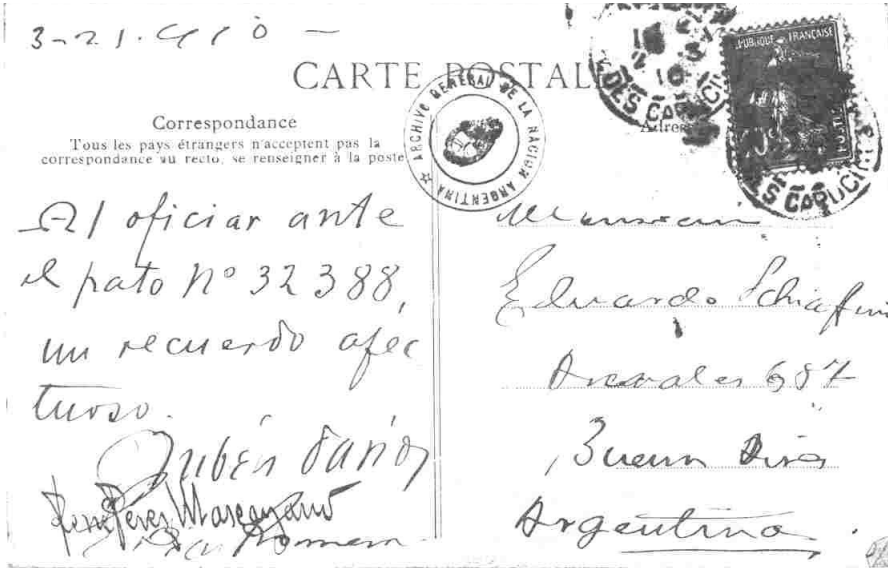 CARTE POSTALE
Correspondance
Tous les pays étrangers n'acceptent pas la
correspondance au recto, se renseigner à la poste
ARCHIVO GENERAL DE LA NACION ARGENTINA
REPUBLIQUE FRANÇAISE
POSTES
DES CAPUCIN
Al oficiar ante
el pato nº 32388,
un recuerdo afec
tuoso.
Rubén Darío
Eduardo Schiafini
Arenales 687
Buenos Aires
Argentina.